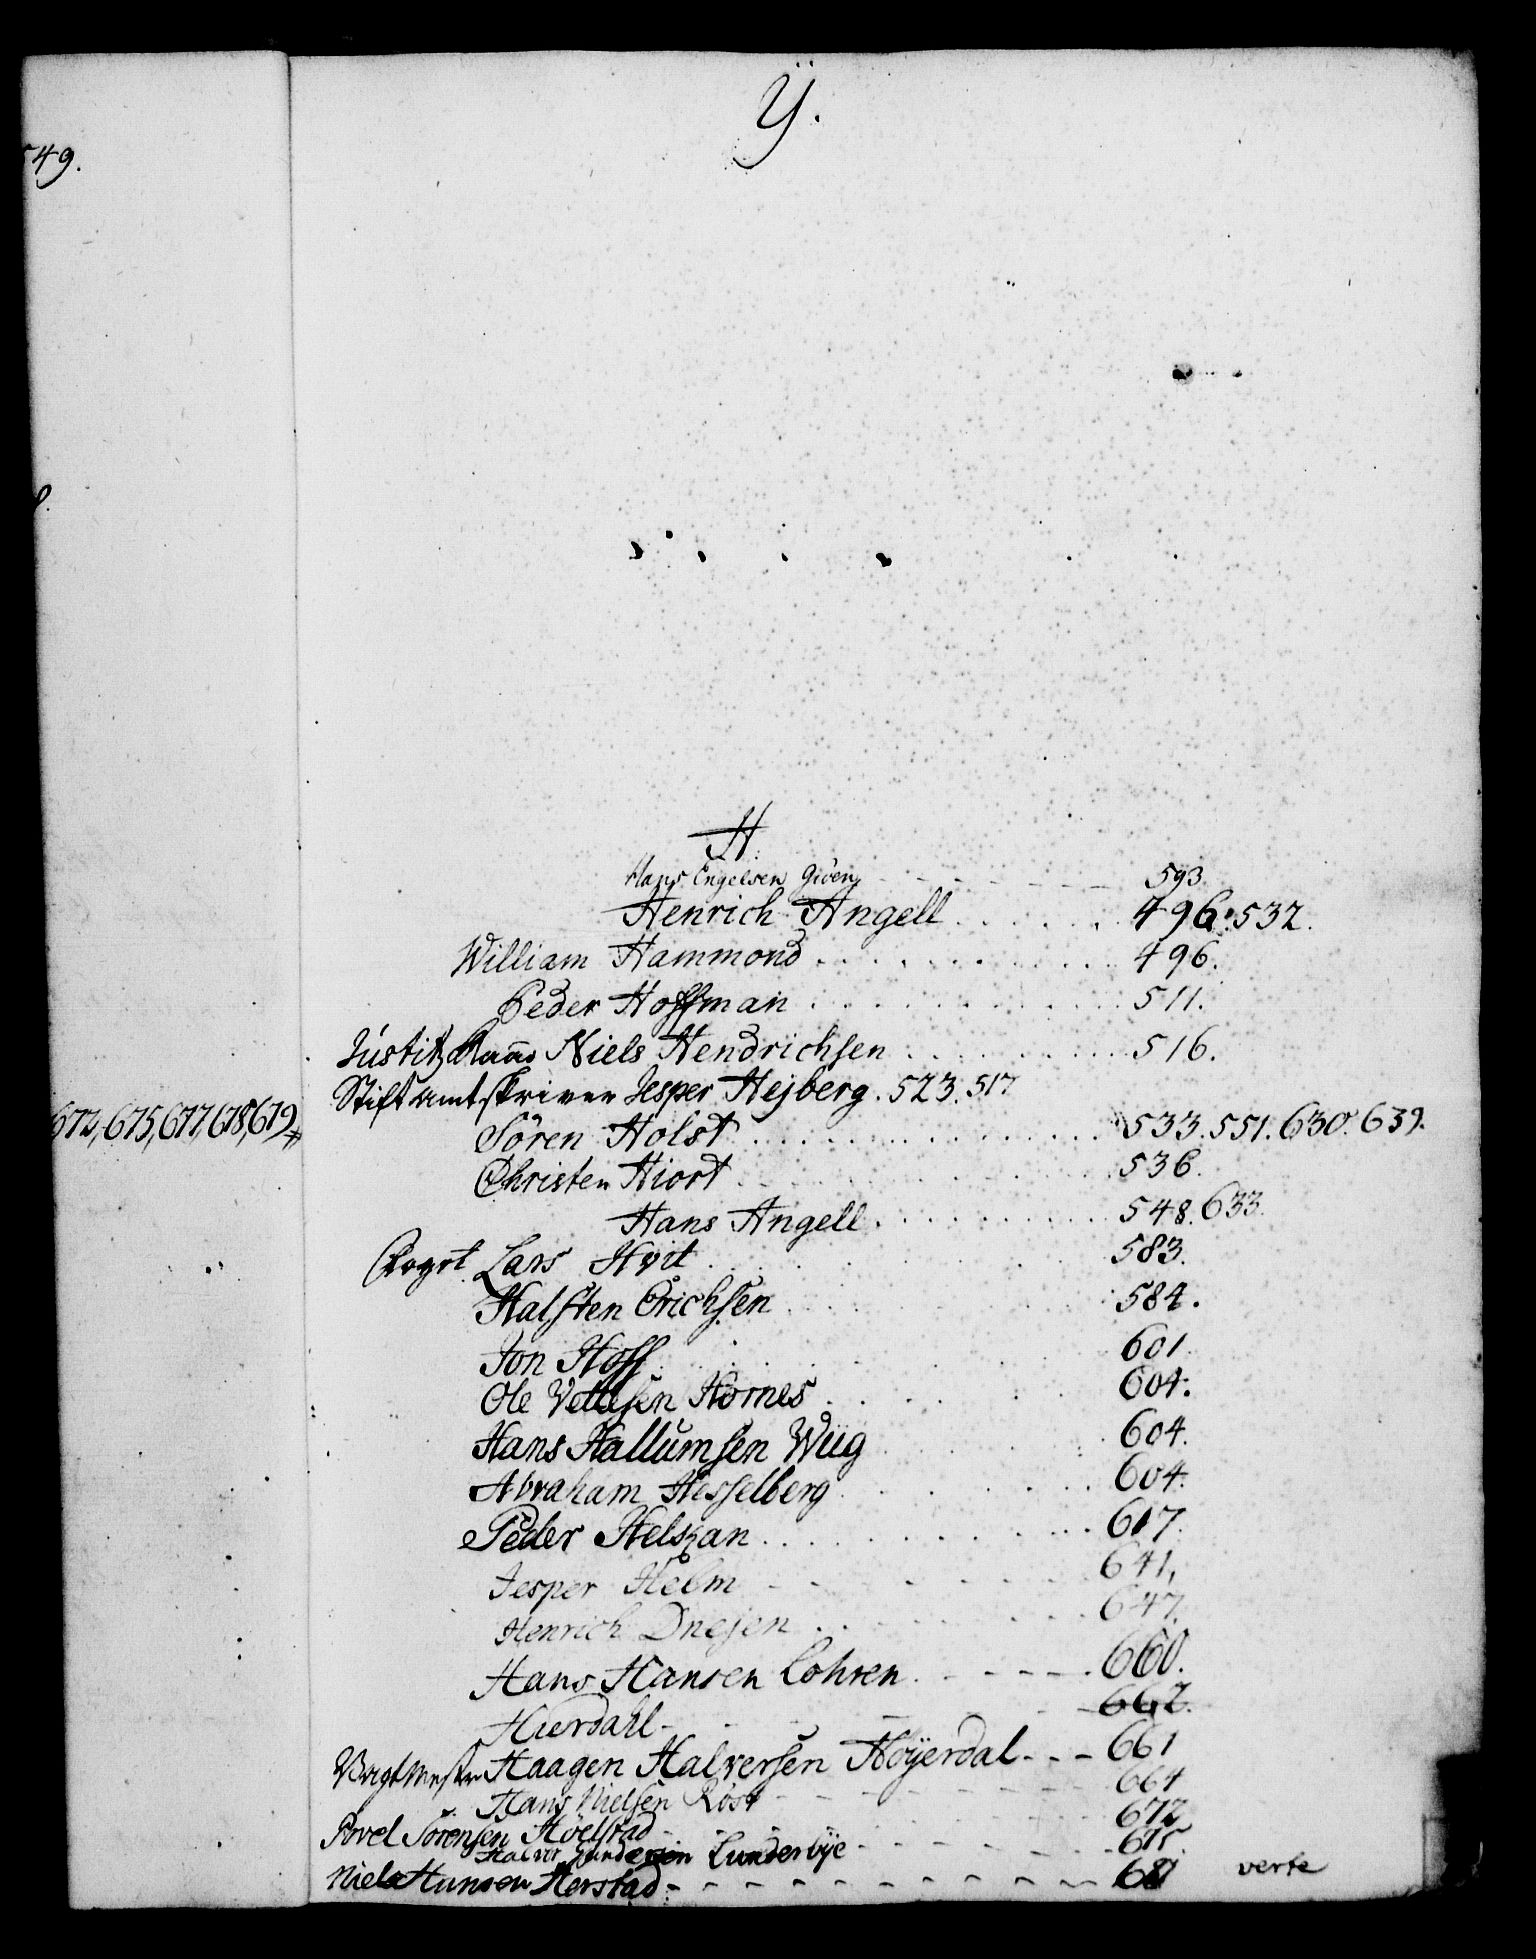 Ÿ.
549.
672, 675, 677, 678, 679
H
Hans Engelsen Giöen 593.
Henrich Angell 496. 532.
William Hammond 496.
Peder Hoffman 511.
Justitz Niels Hendrichsen 516.
Stiftamtskriver Jesper Hejberg. 523. 517
Sören Holst 533. 551. 630. 639.
Christen Hiort 536.
Hans Angell 548. 633.
Lars Hvit 583.
Halsten Erichsen 584.
Jon Hoff 601.
Ole Vettesen Hornes 604.
Hans Hallumsen Wiig 604.
Abraham Hesselberg 604.
Peder Helszan 617.
Jesper Helm 641,
Henrich Dnesen 647.
Hans Hansen Cohren 660.
Hierdahl 662.
Haagen Halversen Höÿerdal 661
Hans Nielsen Rost 664
Povel Sörensen Höelstad 672
Halvor Gundersen Lunderbÿe 675.
Niels Hansen Herstad 681 verte